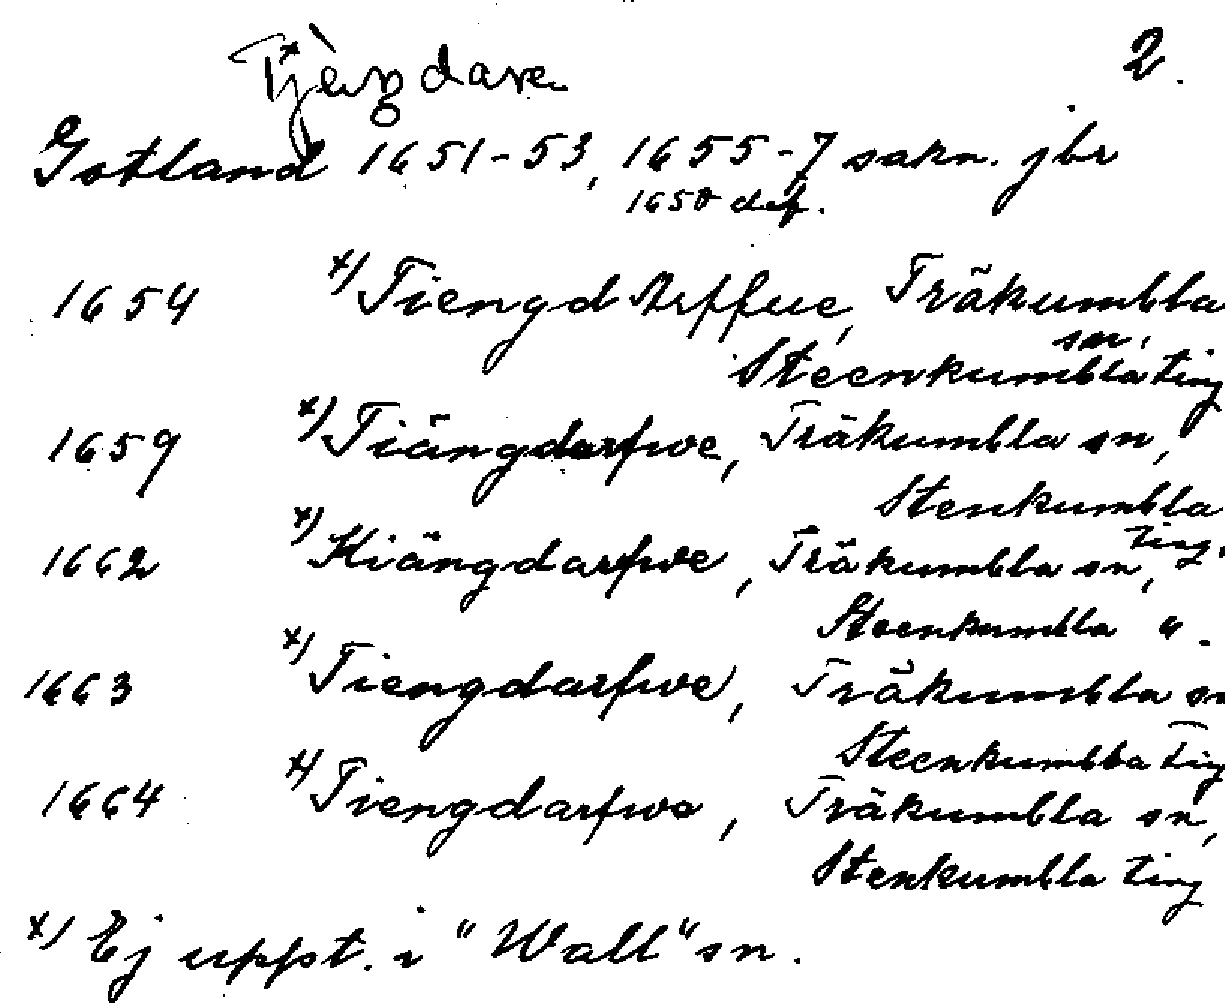 Tjängdarve
2.
Gotland 1651-53, 1655-7 sakn. jbr
1658 def.
1654 x) Tiengd Arffue, Träkumbla
sn,
Steenkumbla ting
1659 x) Tiängdarfwe, Träkumbla sn,
Stenkumbla
ting.
1662 x) Kiängdarfwe, Träkumbla sn,
Steenkumbla ".
1663 x) Tiengdarfwe, Träkumbla sn
Steenkumbla Ting
1664 x) Tiengdarfwe, Träkumbla sn,
Stenkumbla ting
x) Ej uppt. i "Wall" sn.